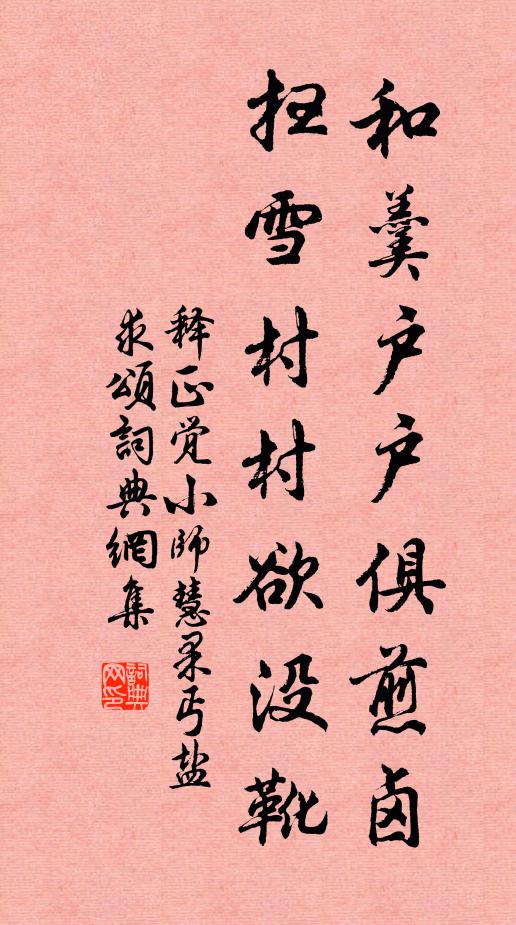 和羹户户俱煎卤
扫雪村村欲没靴
释正觉小师慧杲丐盐
求颂詞典網集
詞典网印